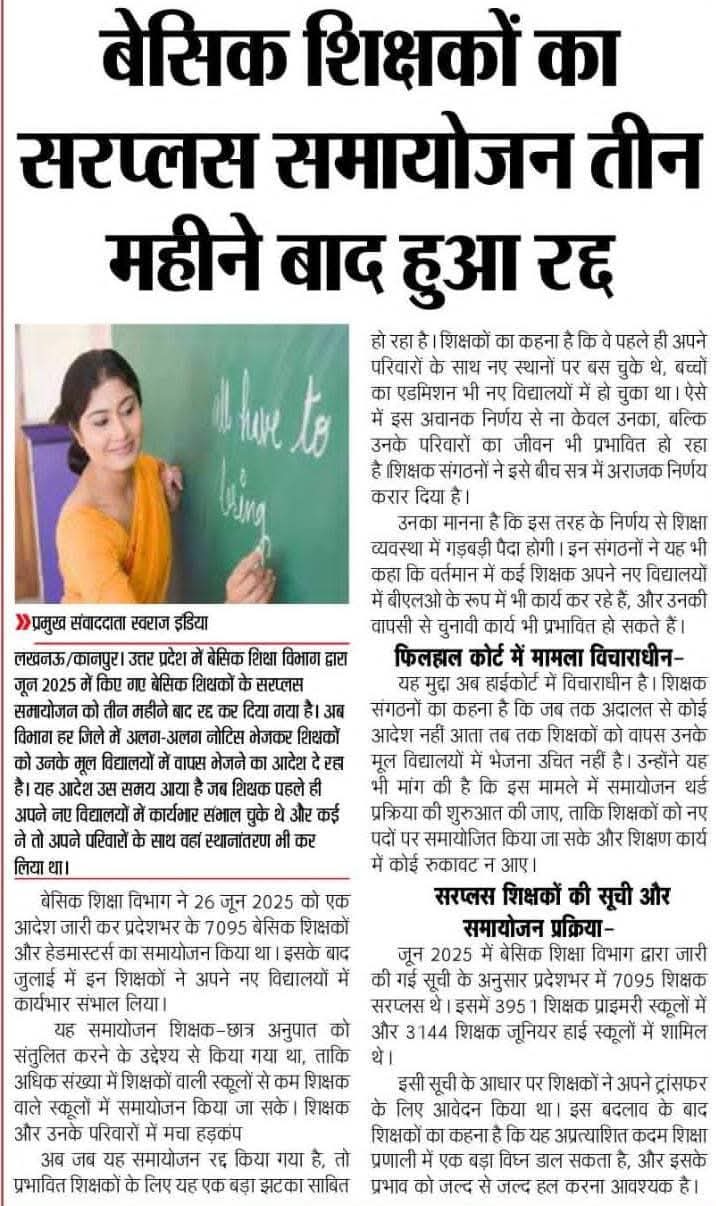 बेसिक शिक्षकों का
सरप्लस समायोजन तीन
महीने बाद हुआ रद्द
all have to
being
»प्रमुख संवाददाता स्वराज इंडिया
लखनऊ/कानपुर। उत्तर प्रदेश में बेसिक शिक्षा विभाग द्वारा
जून 2025 में किए गए बेसिक शिक्षकों के सरप्लस
समायोजन को तीन महीने बाद रद्द कर दिया गया है। अब
विभाग हर जिले में अलग-अलग नोटिस भेजकर शिक्षकों
को उनके मूल विद्यालयों में वापस भेजने का आदेश दे रहा
है। यह आदेश उस समय आया है जब शिक्षक पहले ही
अपने नए विद्यालयों में कार्यभार संभाल चुके थे और कई
ने तो अपने परिवारों के साथ वहां स्थानांतरण भी कर
लिया था।
बेसिक शिक्षा विभाग ने 26 जून 2025 को एक
आदेश जारी कर प्रदेशभर के 7095 बेसिक शिक्षकों
और हेडमास्टर्स का समायोजन किया था। इसके बाद
जुलाई में इन शिक्षकों ने अपने नए विद्यालयों में
कार्यभार संभाल लिया।
यह समायोजन शिक्षक-छात्र अनुपात को
संतुलित करने के उद्देश्य से किया गया था, ताकि
अधिक संख्या में शिक्षकों वाली स्कूलों से कम शिक्षक
वाले स्कूलों में समायोजन किया जा सके। शिक्षक
और उनके परिवारों में मचा हड़कंप
अब जब यह समायोजन रद्द किया गया है, तो
प्रभावित शिक्षकों के लिए यह एक बड़ा झटका साबित
हो रहा है। शिक्षकों का कहना है कि वे पहले ही अपने
परिवारों के साथ नए स्थानों पर बस चुके थे, बच्चों
का एडमिशन भी नए विद्यालयों में हो चुका था। ऐसे
में इस अचानक निर्णय से ना केवल उनका, बल्कि
उनके परिवारों का जीवन भी प्रभावित हो रहा
है।शिक्षक संगठनों ने इसे बीच सत्र में अराजक निर्णय
करार दिया है।
उनका मानना है कि इस तरह के निर्णय से शिक्षा
व्यवस्था में गड़बड़ी पैदा होगी। इन संगठनों ने यह भी
कहा कि वर्तमान में कई शिक्षक अपने नए विद्यालयों
में बीएलओ के रूप में भी कार्य कर रहे हैं, और उनकी
वापसी से चुनावी कार्य भी प्रभावित हो सकते हैं।
फिलहाल कोर्ट में मामला विचाराधीन-
यह मुद्दा अब हाईकोर्ट में विचाराधीन है। शिक्षक
संगठनों का कहना है कि जब तक अदालत से कोई
आदेश नहीं आता तब तक शिक्षकों को वापस उनके
मूल विद्यालयों में भेजना उचित नहीं है। उन्होंने यह
भी मांग की है कि इस मामले में समायोजन थर्ड
प्रक्रिया की शुरुआत की जाए, ताकि शिक्षकों को नए
पदों पर समायोजित किया जा सके और शिक्षण कार्य
में कोई रुकावट न आए।
सरप्लस शिक्षकों की सूची और
समायोजन प्रक्रिया-
जून 2025 में बेसिक शिक्षा विभाग द्वारा जारी
की गई सूची के अनुसार प्रदेशभर में 7095 शिक्षक
सरप्लस थे। इसमें 3951 शिक्षक प्राइमरी स्कूलों में
और 3144 शिक्षक जूनियर हाई स्कूलों में शामिल
थे।
इसी सूची के आधार पर शिक्षकों ने अपने ट्रांसफर
के लिए आवेदन किया था। इस बदलाव के बाद
शिक्षकों का कहना है कि यह अप्रत्याशित कदम शिक्षा
प्रणाली में एक बड़ा विघ्न डाल सकता है, और इसके
प्रभाव को जल्द से जल्द हल करना आवश्यक है।